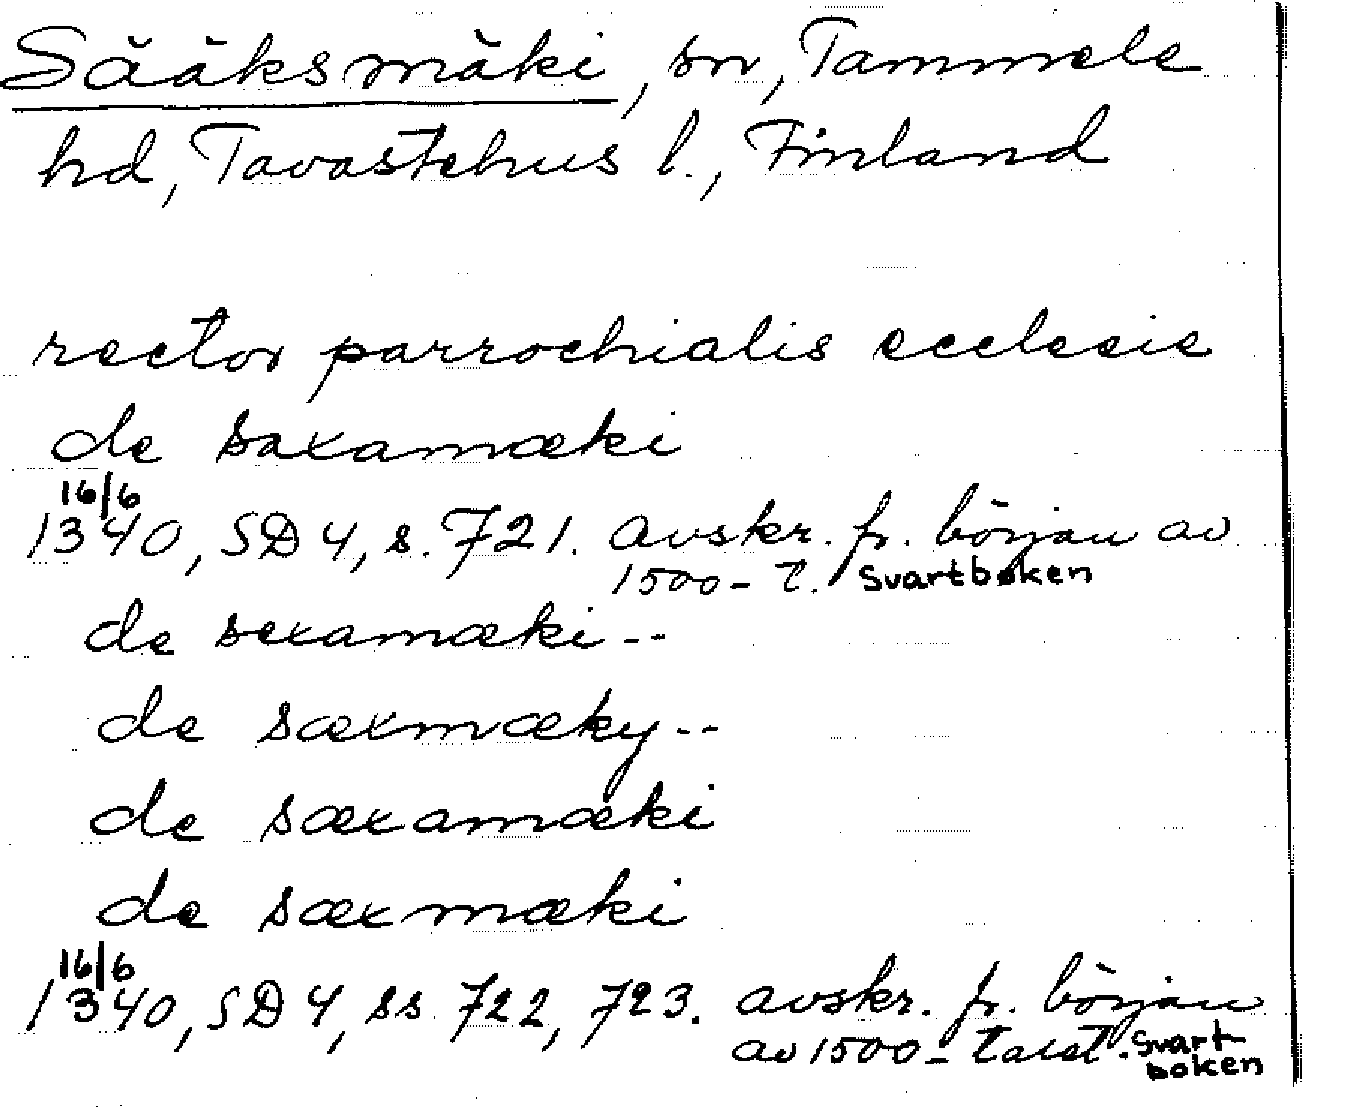 Sääksmäki, sn, Tammela
hd, Tavastehus l., Finland
rector parrochialis ecclesie
de saxamæki
16/6
1340, SD 4, s. 721. avskr. fr. början av
1500-t. Svartboken
de sexamæki--
de sæxmæky--
de sæxamæki
de sæxmæki
16/6
1340, SD 4, ss 722, 723. avskr. fr. början
av 1500-talet. Svart-
boken